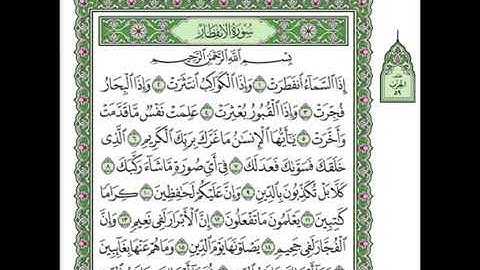 سُورَةُ الِانفِطَارِ
بِسْمِ اللَّهِ الرَّحْمَٰنِ الرَّحِيمِ
إِذَا السَّمَاءُ انفَطَرَتْ ١ وَإِذَا الْكَوَاكِبُ انتَثَرَتْ ٢ وَإِذَا الْبِحَارُ
فُجِّرَتْ ٣ وَإِذَا الْقُبُورُ بُعْثِرَتْ ٤ عَلِمَتْ نَفْسٌ مَّا قَدَّمَتْ
وَأَخَّرَتْ ٥ يَا أَيُّهَا الْإِنسَانُ مَا غَرَّكَ بِرَبِّكَ الْكَرِيمِ ٦ الَّذِي
خَلَقَكَ فَسَوَّاكَ فَعَدَلَكَ ٧ فِي أَيِّ صُورَةٍ مَّا شَاءَ رَكَّبَكَ ٨
كَلَّا بَلْ تُكَذِّبُونَ بِالدِّينِ ٩ وَإِنَّ عَلَيْكُمْ لَحَافِظِينَ ١٠ كِرَامًا
كَاتِبِينَ ١١ يَعْلَمُونَ مَا تَفْعَلُونَ ١٢ إِنَّ الْأَبْرَارَ لَفِي نَعِيمٍ ١٣ وَإِنَّ
الْفُجَّارَ لَفِي جَحِيمٍ ١٤ يَصْلَوْنَهَا يَوْمَ الدِّينِ ١٥ وَمَا هُمْ عَنْهَا بِغَائِبِينَ
الحزب
٥٩